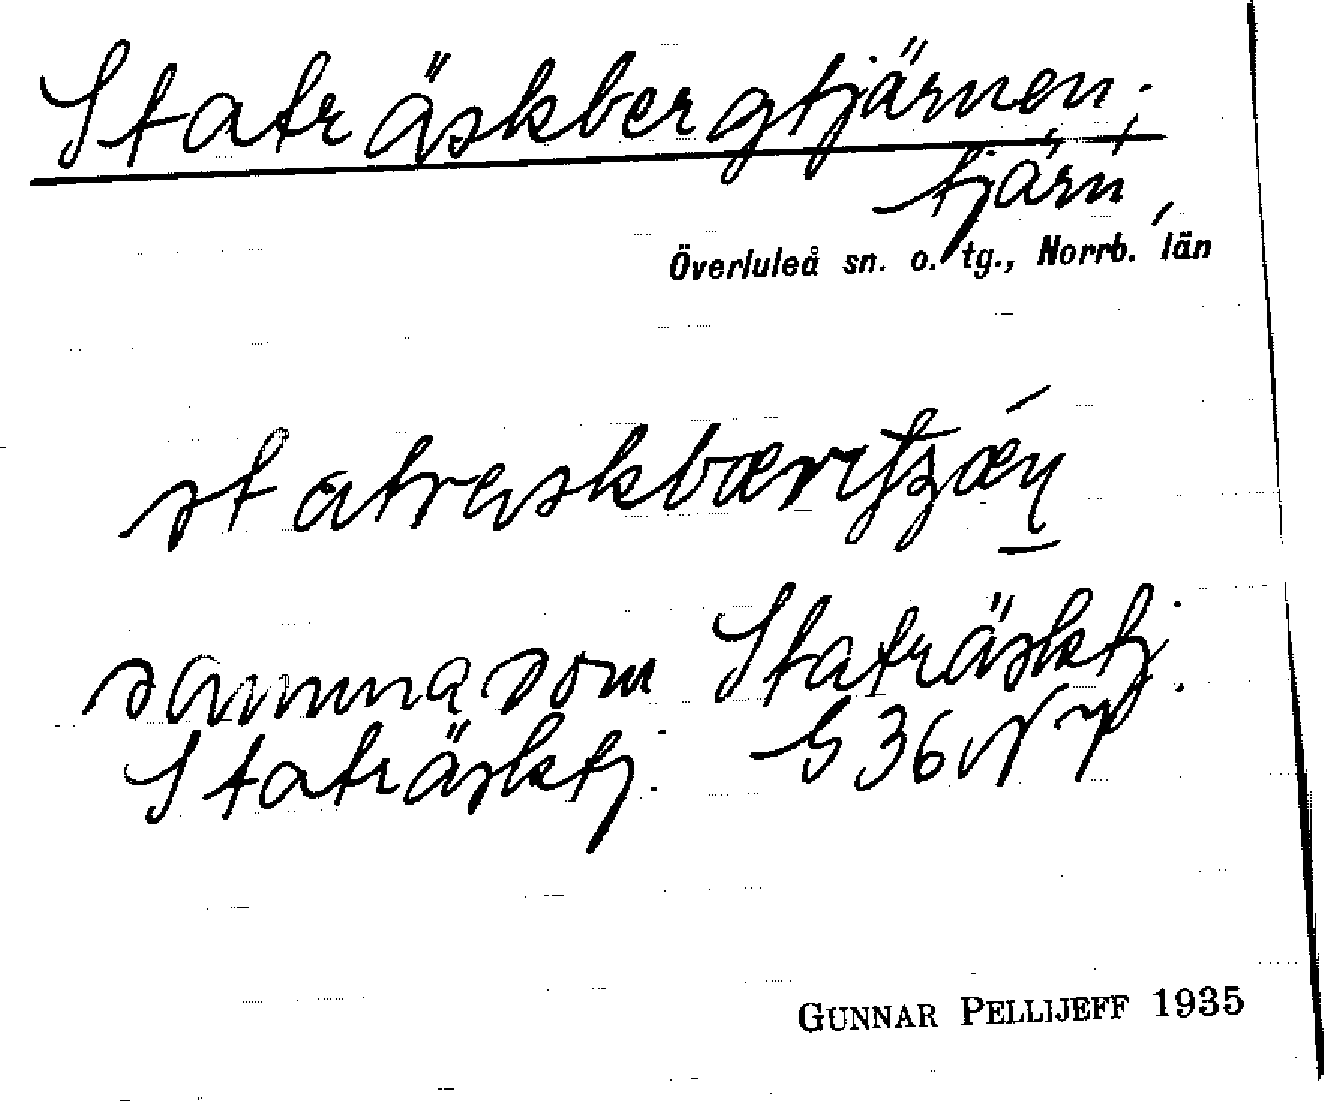 Staträskbergtjärnen.
tjärn
Överluleå sn. o. tg., Norrb. län
samma som Staträsktj.
Staträsktj.
GUNNAR PELLIJEFF 1935